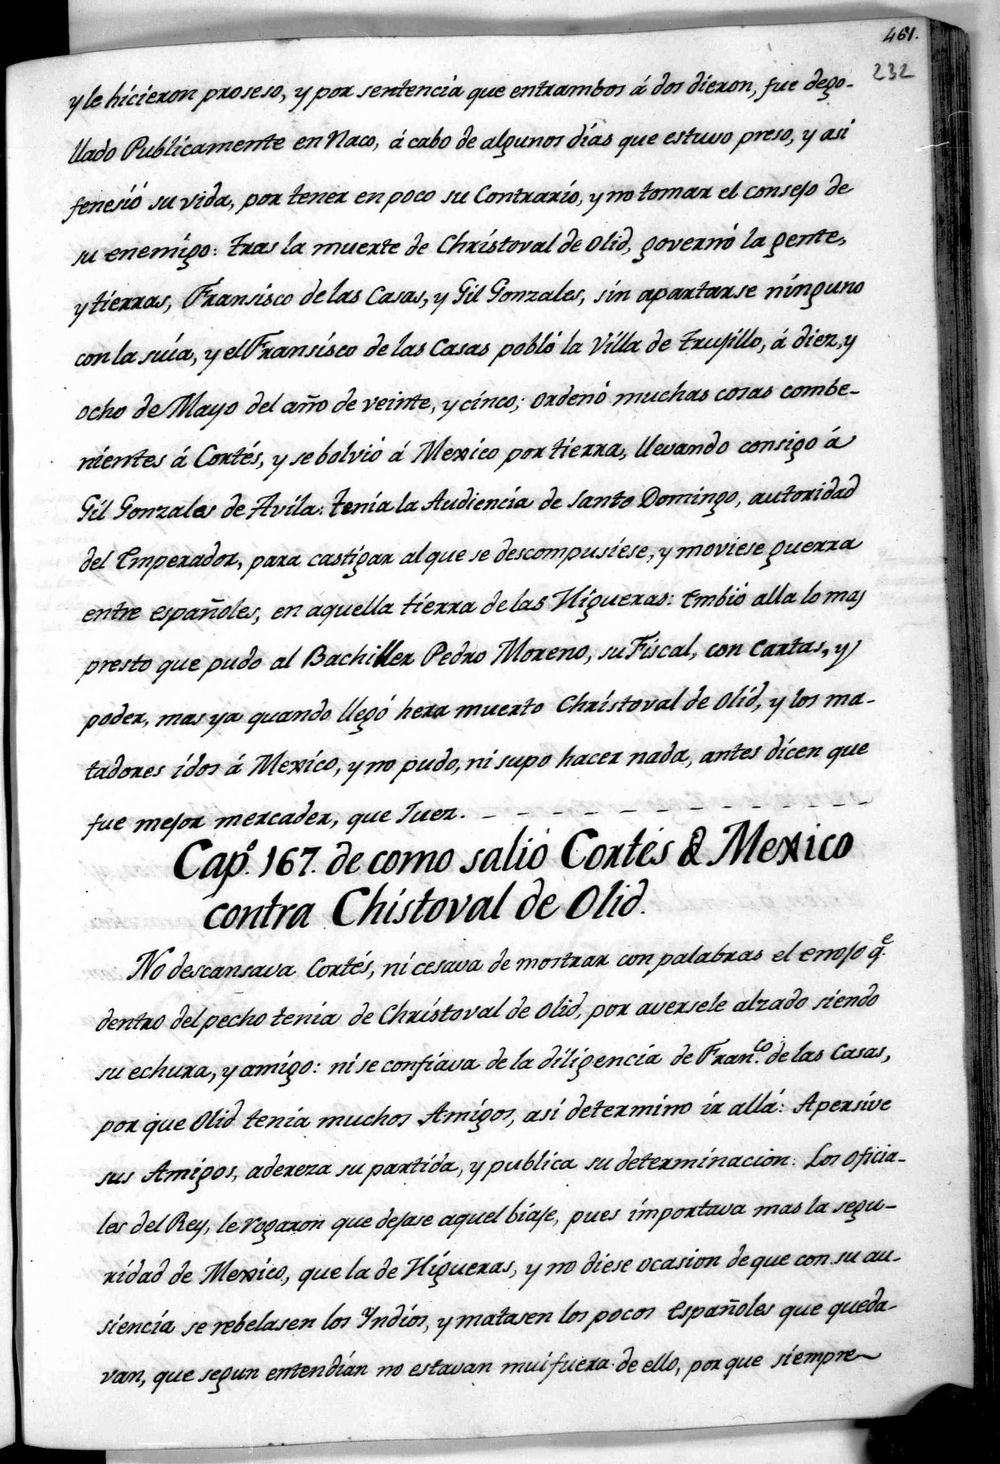 461.
232
y le hicieron proseso, y por sentencia que entrambos á dos dieron, fue dego-
llado Publicamente en Naco, á cabo de algunos días que estuvo preso, y asi
fenesió su vida, por tener en poco su Contrario, y no tomar el consejo de
su enemigo: tras la muerte de Christoval de Olid, governó la gente,
y tierras, Fransisco de las Casas, y Gil Gonzales, sin apartarse ninguno
con la suia, y el Fransisco de las Casas pobló la Villa de Trujillo, á diez, y
ocho de Mayo del año de veinte, y cinco; ordenó muchas cosas combe-
nientes á Cortés, y se bolvió á Mexico por tierra, llevando consigo á
Gil Gonzales de Avila: tenia la Audiencia de Santo Domingo, autoridad
del Emperador, para castigar al que se descompusiese, y moviese guerra
entre españoles, en aquella tierra de las Higueras: Embió alla lo mas
presto que pudo al Bachiller Pedro Moreno, su Fiscal, con Cartas, y
poder, mas ya quando llegó hera muerto Christoval de Olid, y los ma-
tadores idos á Mexico, y no pudo, ni supo hacer nada, antes dicen que
fue mejor mercader, que Juez. _ _ _ _ _ _ _ _ _ _ _ _
Capº. 167. de como salió Cortés d Mexico
contra Chistoval de Olid.
No descansava Cortés, ni cesava de mostrar con palabras el enojo q.e
dentro del pecho tenia de Christoval de Olid, por aversele alzado siendo
su echura, y amigo: ni se confiava de la diligencia de Fran.co de las Casas,
por que Olid tenia muchos Amigos, asi determino ir allá: Apersive
sus Amigos, adereza su partida, y publica su determinacion: Los oficia-
les del Rey, le rogaron que dejase aquel biaje, pues importava mas la segu-
ridad de Mexico, que la de Higueras, y no diese ocasion de que con su au-
siencia se rebelasen los Yndios, y matasen los pocos Españoles que queda-
van, que segun entendian no estavan mui fuera de ello, por que siempre